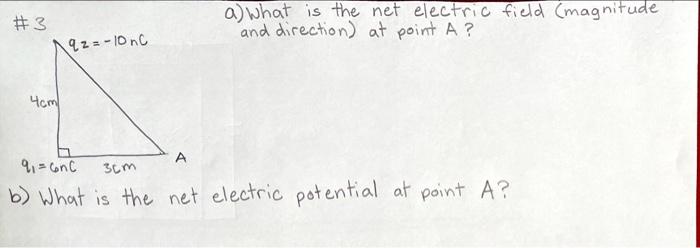 #3
a) What is the net electric field (magnitude
and direction) at point A?
q2 = -10nC
4cm
q1 = 6nC
3cm
A
b) What is the net electric potential at point A?